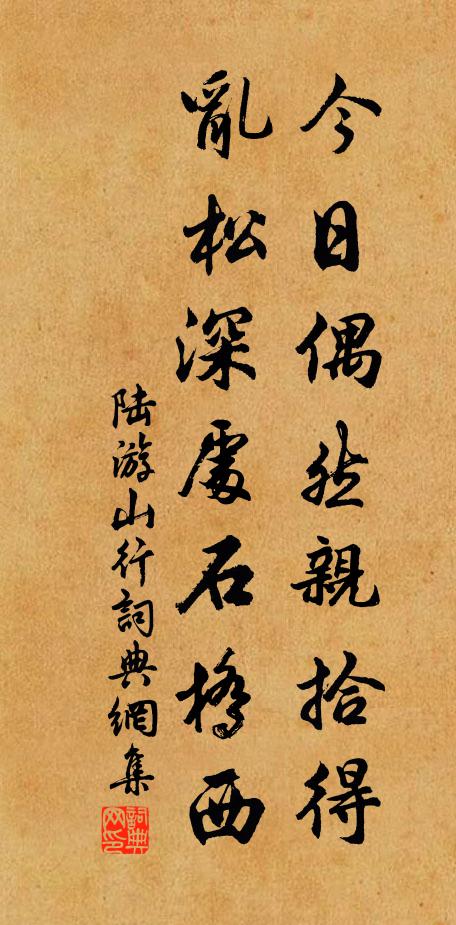 今日偶然親拾得
亂松深處石橋西
陆游山行詞典網集
詞典网印